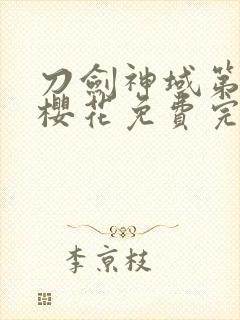 刀劍神域第
櫻花免費完
李京枝